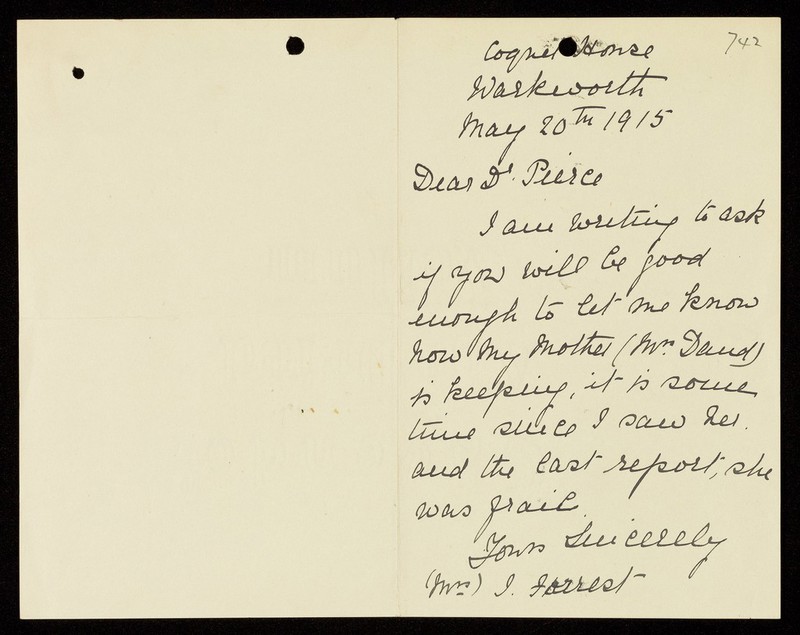 742
Coquet House
Warkworth
May 20th 1915
Dear Dr. Pierce
I am writing to ask
if you will be good
enough to let me know
how my Mother (Mrs. Daud)
is keeping, it is some
time since I saw her.
and the last report, she
was frail.
Yours Sincerely
(Mrs) I. Forrest